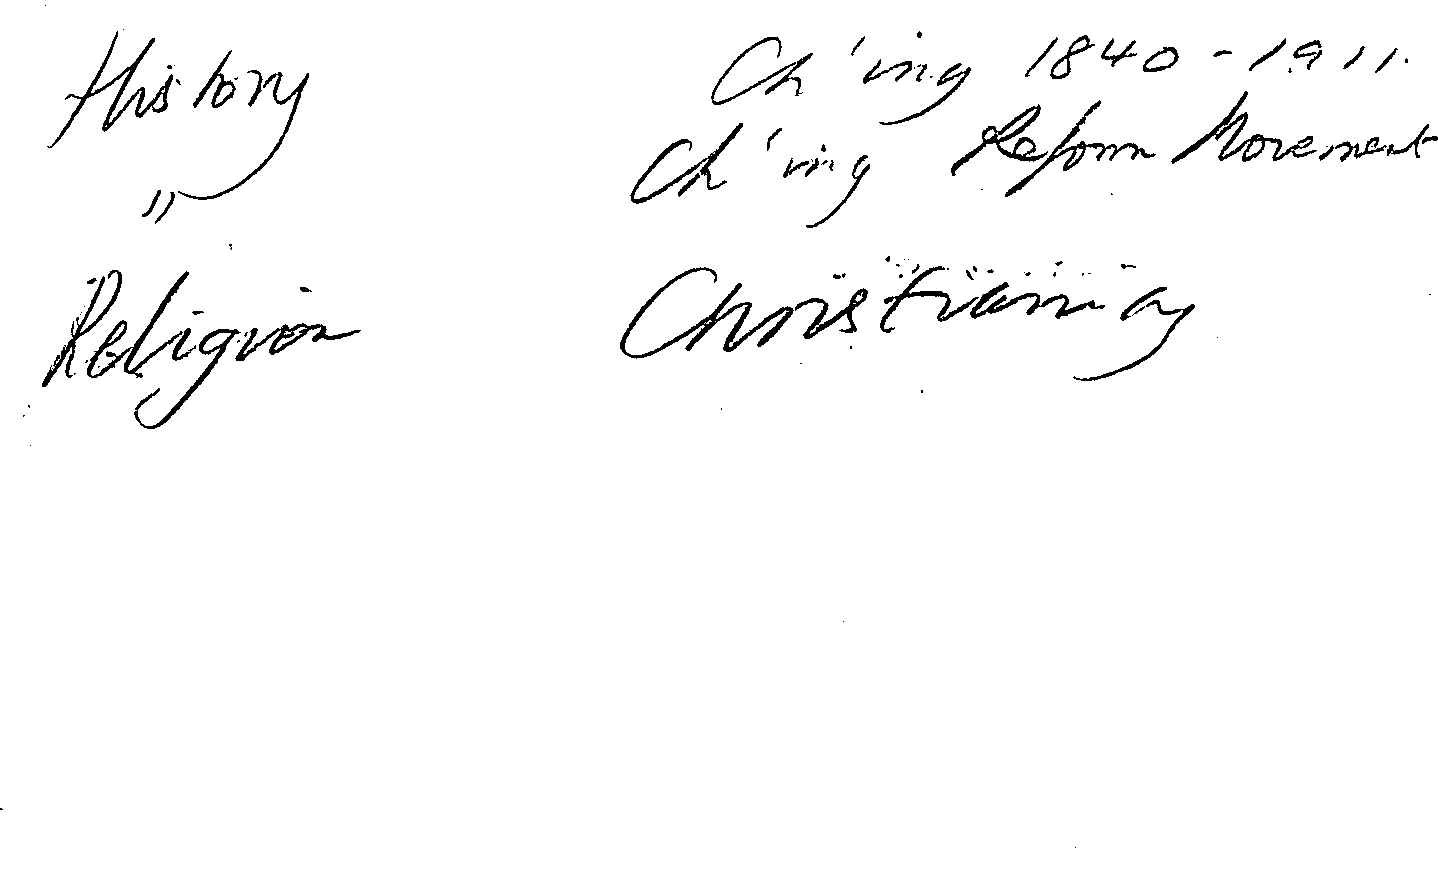 History Ch'ing 1840-1911.
" Ch'ing Reform Movement
Religion Christianity